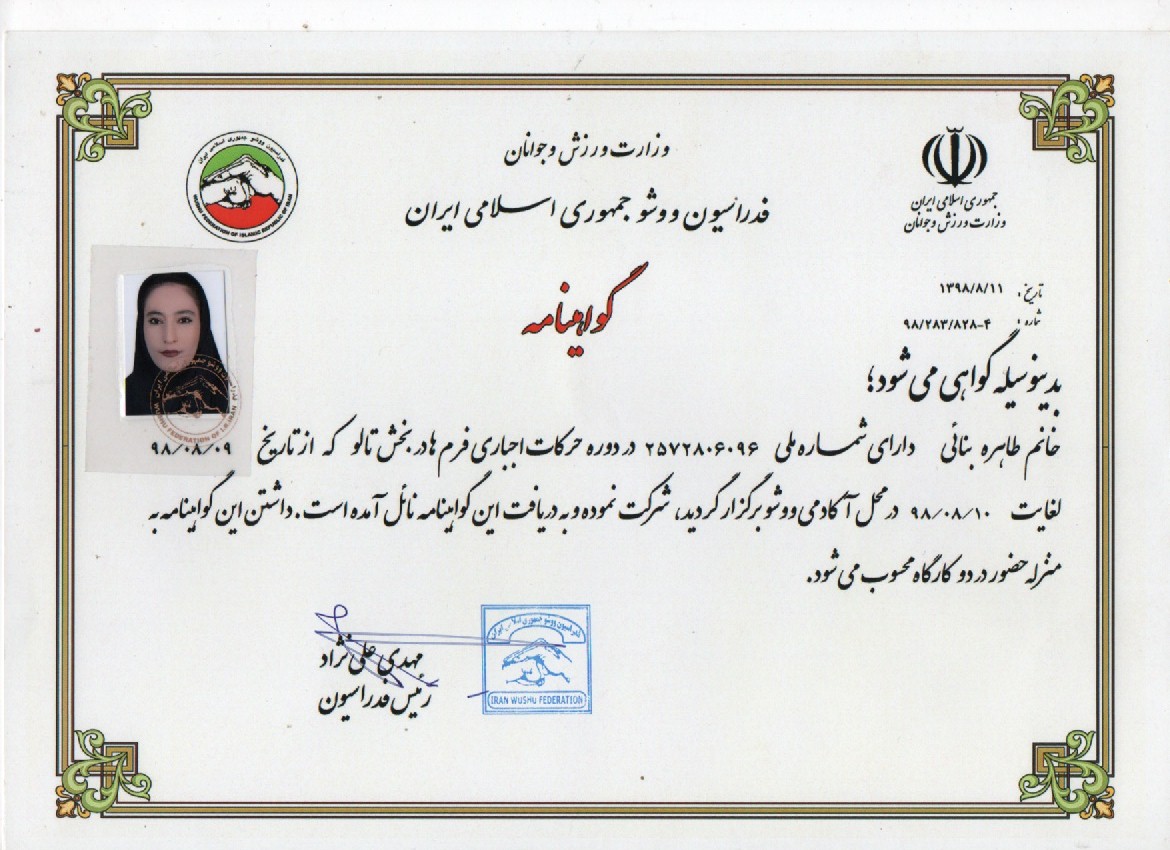 وزارت ورزش و جوانان
فدراسیون ووشو جمهوری اسلامی ایران
جمهوری اسلامی ایران
وزارت ورزش و جوانان
فدراسیون ووشو جمهوری اسلامی ایران
WUSHU FEDERATION OF ISLAMIC REPUBLIC OF IRAN
گواهینامه
تاریخ: ۱۳۹۸/۸/۱۱
شماره: ۹۸/۲۸۳/۸۲۸-۴
بدینوسیله گواهی می شود؛
خانم طاهره بنائی دارای شماره ملی ۲۵۷۲۸۰۶۰۹۶ در دوره حرکات اجباری فرم ها در بخش تالو که از تاریخ ۹۸/۰۸/۰۹
لغایت ۹۸/۰۸/۱۰ در محل آکادمی ووشو برگزار گردید، شرکت نموده و به دریافت این گواهینامه نائل آمده است. داشتن این گواهینامه به
منزله حضور در دو کارگاه محسوب می شود.
WUSHU FEDERATION OF I.R.IRAN
مهدی علی نژاد
رئیس فدراسیون
فدراسیون ووشو جمهوری اسلامی ایران
IRAN WUSHU FEDERATION